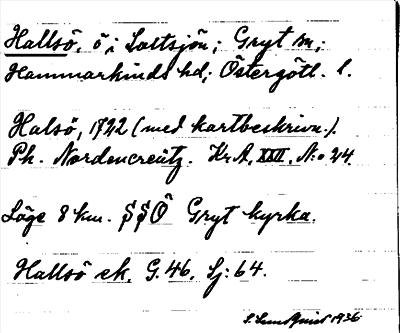 Hallsö, ö i Saltsjön; Gryt sn;
Hammarkinds hd; Östergötl. l.
Halsö, 1722 (med kartbeskrivn.).
Ph. Nordencreutz. Kr.A. XXII. N:o 24.
Läge 8 km. SSÖ Gryt kyrka.
Hallsö ek. G. 46. Sj: 64.
S. Lundquist 1936